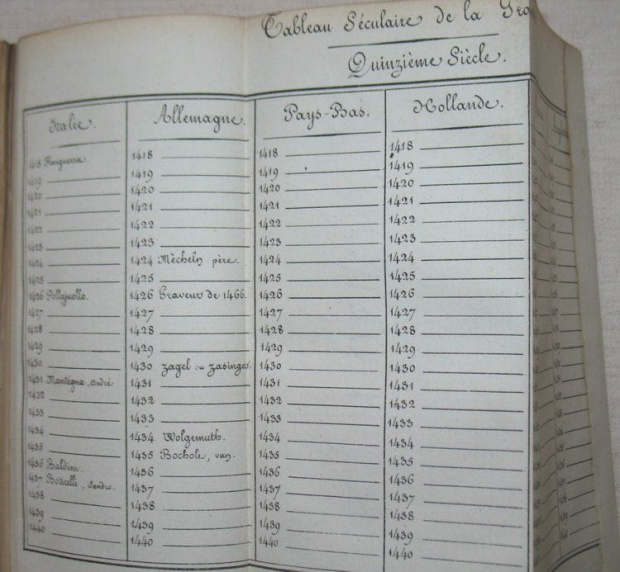 Tableau Séculaire de la Gra
Quinzième Siècle.
Italie.
1418
1419
1420
1421
1422
1423
1424
1425
1426 Pollajuolle.
1427
1428
1429
1430
1431 Mantégna, andré
1432
1433
1434
1435
1436 Baldini.
1437 Boticelle, Sandro.
1438
1439
1440
Allemagne.
1418
1419
1420
1421
1422
1423
1424 Mècheln père.
1425
1426 Graveur de 1466.
1427
1428
1429
1430 Zagel ou Zasinger
1431
1432
1433
1434 Wolgemuth.
1435 Bochole, van.
1436
1437
1438
1439
1440
Pays-Bas.
1418
1419
1420
1421
1422
1423
1424
1425
1426
1427
1428
1429
1430
1431
1432
1433
1434
1435
1436
1437
1438
1439
1440
Hollande.
1418
1419
1420
1421
1422
1423
1424
1425
1426
1427
1428
1429
1430
1431
1432
1433
1434
1435
1436
1437
1438
1439
1440